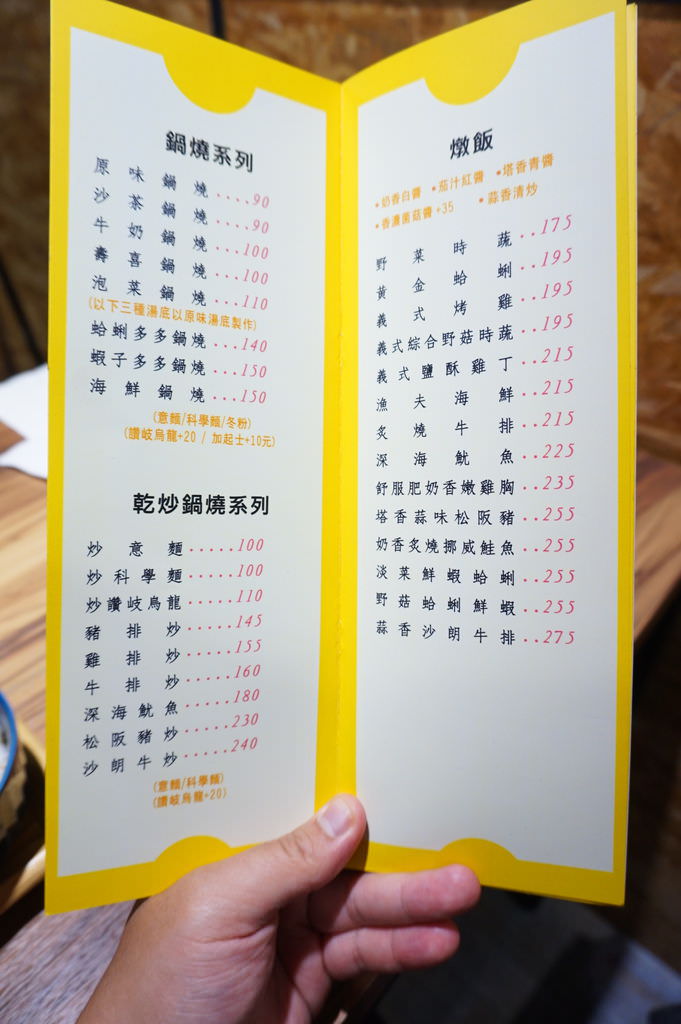 鍋燒系列
原味鍋燒....90
沙茶鍋燒....90
牛奶鍋燒...100
壽喜鍋燒...100
泡菜鍋燒...110
(以下三種湯底以原味湯底製作)
蛤蜊多多鍋燒...140
蝦子多多鍋燒...150
海鮮鍋燒...150
(意麵/科學麵/冬粉)
(讚岐烏龍+20 / 加起士+10元)
乾炒鍋燒系列
炒意麵.....100
炒科學麵.....100
炒讚岐烏龍.....110
豬排炒.....145
雞排炒.....155
牛排炒.....160
深海魷魚.....180
松阪豬炒.....230
沙朗牛炒.....240
(意麵/科學麵)
(讚岐烏龍+20)
燉飯
•奶香白醬 •茄汁紅醬 •塔香青醬
•香濃菌菇醬+35 •蒜香清炒
野菜時蔬..175
黃金蛤蜊..195
義式烤雞..195
義式綜合野菇時蔬..195
義式鹽酥雞丁..215
漁夫海鮮..215
炙燒牛排..215
深海魷魚..225
舒服肥奶香嫩雞胸..235
塔香蒜味松阪豬..255
奶香炙燒挪威鮭魚..255
淡菜鮮蝦蛤蜊..255
野菇蛤蜊鮮蝦..255
蒜香沙朗牛排..275